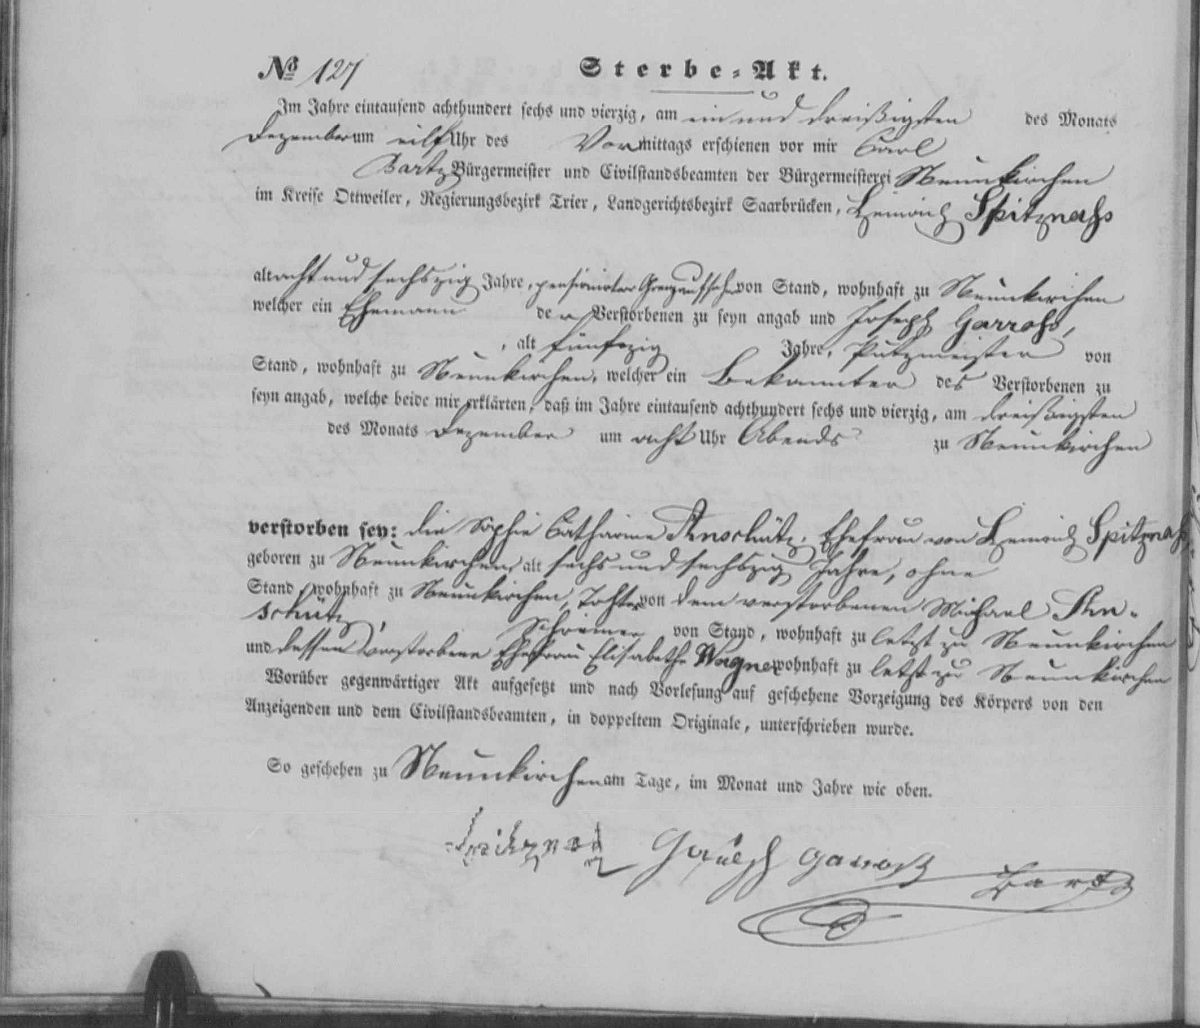 № 127 Sterbe-Akt.
Im Jahre eintausend achthundert sechs und vierzig, am ein und dreißigsten des Monats
Dezember um eilf Uhr des Vormittags erschienen vor mir Carl
Bartz Bürgermeister und Civilstandsbeamten der Bürgermeisterei Neunkirchen
im Kreise Ottweiler, Regierungsbezirk Trier, Landgerichtsbezirk Saarbrücken, Heinrich Spitznaß
alt acht und sechszig Jahre, pensionirter Grenzaufseher von Stand, wohnhaft zu Neunkirchen
welcher ein Ehemann der Verstorbenen zu seyn angab und Joseph Garroß,
, alt fünfzig Jahre, Putzmeister von
Stand, wohnhaft zu Neunkirchen, welcher ein Bekannter des Verstorbenen zu
seyn angab, welche beide mir erklärten, daß im Jahre eintausend achthundert sechs und vierzig, am dreißigsten
des Monats Dezember um acht Uhr Abends zu Neunkirchen
verstorben sey: die Sophie Catharine Anschütz, Ehefrau von Heinrich Spitznaß
geboren zu Neunkirchen, alt sechs und sechszig Jahre, ohne
Stand, wohnhaft zu Neunkirchen, Tochter von dem verstorbenen Michael An-
schütz, Schreiner von Stand, wohnhaft zu letzt zu Neunkirchen
und dessen verstorbene Ehefrau Elisabetha Wagner wohnhaft zu letzt zu Neunkirchen
Worüber gegenwärtiger Akt aufgesetzt und nach Vorlesung auf geschehene Vorzeigung des Körpers von den
Anzeigenden und dem Civilstandsbeamten, in doppeltem Originale, unterschrieben wurde.
So geschehen zu Neunkirchen am Tage, im Monat und Jahre wie oben.
Spitznas Joseph Garroß Bartz